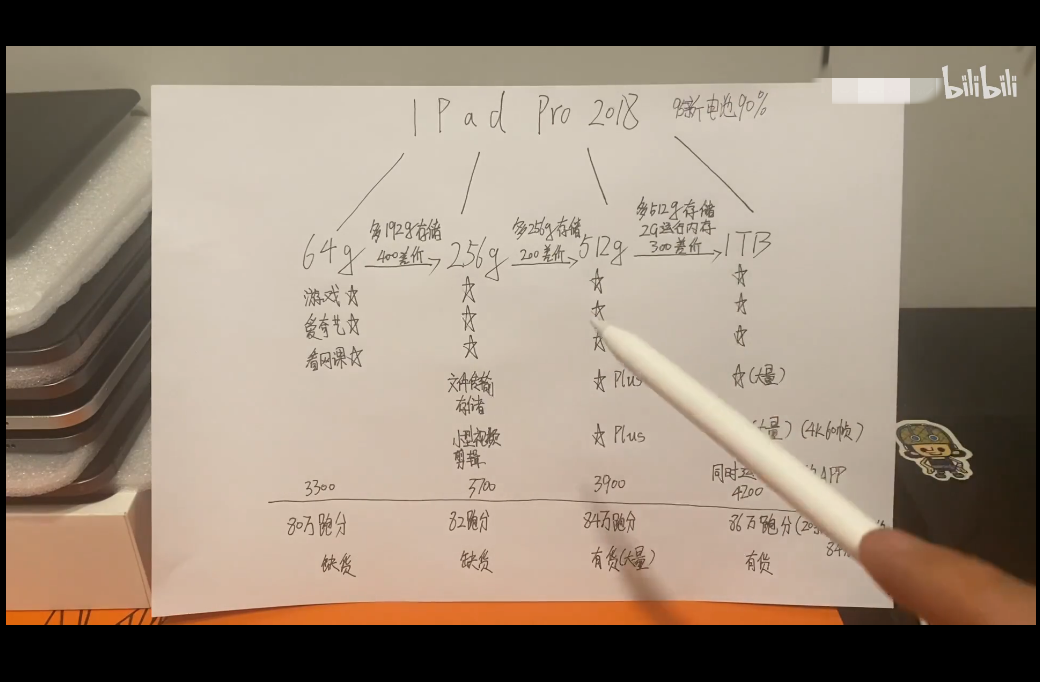 bilibili
IPad Pro 2018 98新电池90%
多192g存储
400差价
多256g存储
200差价
多512g存储
2G运行内存
300差价
64g
256g
512g
1TB
游戏☆
☆
☆
☆
爱奇艺☆
☆
☆
☆
看网课☆
☆
☆
☆
文件传输
存储
☆ Plus
☆(大量)
小型视频
剪辑
☆ Plus
大量)(4K60帧)
同时运
APP
3300
3700
3900
4200
80万跑分
82跑分
84万跑分
86万跑分
缺货
缺货
有货(大量)
有货